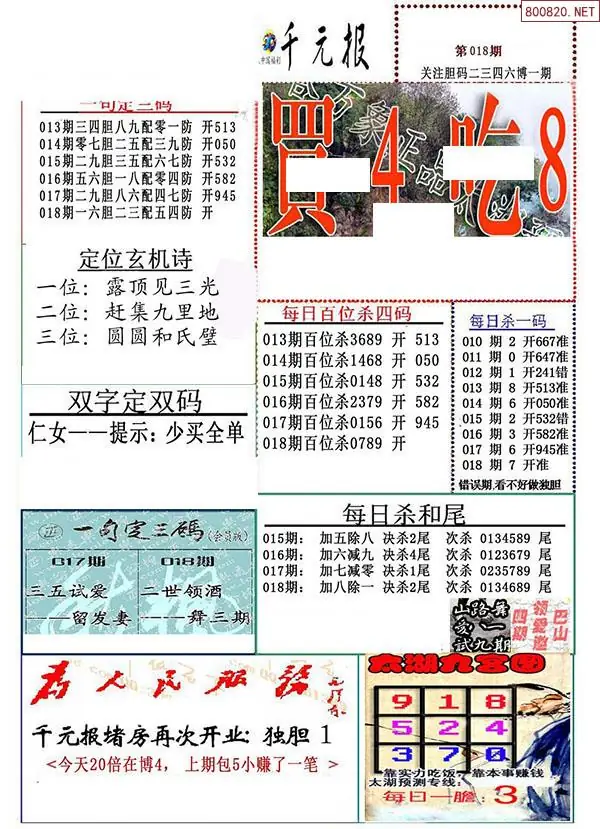 800820.NET
千元报
中国福利
第018期
关注胆码二三四六博一期
買4吃8
一句定三码
013期三四胆八九配零一防 开513
014期零七胆二五配三九防 开050
015期二九胆三五配六七防 开532
016期五六胆一八配零四防 开582
017期二九胆八六配四七防 开945
018期一六胆二三配五四防 开
定位玄机诗
一位: 露顶见三光
二位: 赶集九里地
三位: 圆圆和氏璧
每日百位杀四码
013期百位杀3689 开 513
014期百位杀1468 开 050
015期百位杀0148 开 532
016期百位杀2379 开 582
017期百位杀0156 开 945
018期百位杀0789 开
每日杀一码
010 期 2 开667准
011 期 0 开647准
012 期 1 开241错
013 期 8 开513准
014 期 6 开050准
015 期 2 开532错
016 期 3 开582准
017 期 6 开945准
018 期 7 开准
错误期,看不好做独胆
双字定双码
仁女——提示: 少买全单
每日杀和尾
015期: 加五除八 决杀2尾 次杀 0134589 尾
016期: 加六减九 决杀4尾 次杀 0123679 尾
017期: 加七减零 决杀1尾 次杀 0235789 尾
018期: 加八除一 决杀2尾 次杀 0134689 尾
一句定三碼(会员版)
017期 018期
三五试爱 二世领酒
——留发妻 ——舞三期
山路舞
爱一
试九期
巴山
领爱邀
四期
为人民服务
千元报堵房再次开业: 独胆 1
<今天20倍在博4, 上期包5小赚了一笔 >
太湖九宫图
9 1 8
5 2 4
3 7 0
靠实力吃饭, 靠本事赚钱
太湖预测专线:
每日一胆: 3